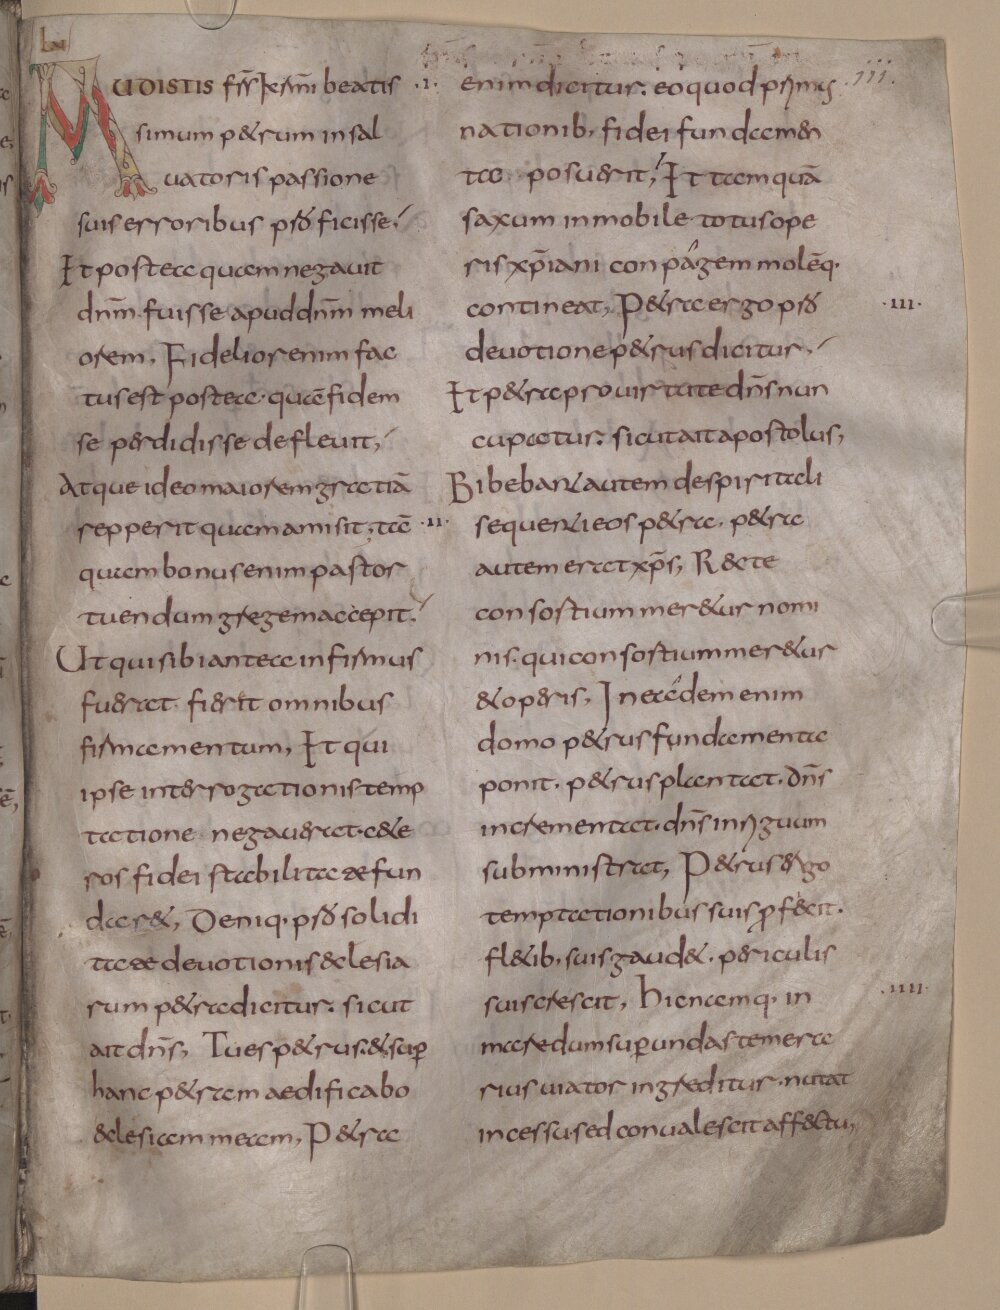 AUDISTIS fr̄s k̄rīm̄i beatis ·I·
simum petrum in sal
uatoris passione
suis erroribus profecisse.
Et postea quam negauit
dn̄m. fuisse apud dn̄m meli
orem. Fidelior enim fac
tus est postea. quā fidem
se perdidisse defleuit,
Atque ideo maiorem gratiā
repperit quam amisit. tā ·II·
quam bonus enim pastor
tuendum gregem accepit.
Ut qui sibi antea infirmus
fuerat. fieret omnibus
firmamentum, Et qui
ipse interrogationis temp
tatione negauerat. cete
ros fidei stabilitate fun
daret, Deniq· pro soliditate
tate deuotionis eclesia
rum petra dicitur. sicut
ait dn̄s, Tu es petrus. et sup̄
hanc petram aedificabo
eclesiam meam, Petra
enim dicitur. eo quod primus iii.
nationib· fidei fundamen
ta posuerit, Et tamquā
saxum inmobile totius ope
ris xp̄iani conpagem molēq·
contineat, Petra ergo pro ·III·
deuotione petrus dicitur.
Et petra pro uirtute dn̄s nun
cupatur. sicut ait apostolus,
Bibebant autem de spiritali
sequenti eos petra. petra
autem erat xp̄s, Recte
consortium meretur nomi
nis. qui consortium meretur
et operis, In eadem enim
domo petrus fundamenta
ponit. petrus plantat. dn̄s
incrementat. dn̄s inriguum
subministrat, Petrus ergo
temptationibus suis p̄fecit.
fletib· suis gaudet. periculis
suis crescit, Hic namq· in ·IIII·
macredum sup̄ undas temera
rius uiator ingreditur. nutat
incessu. sed conualescit affectu,